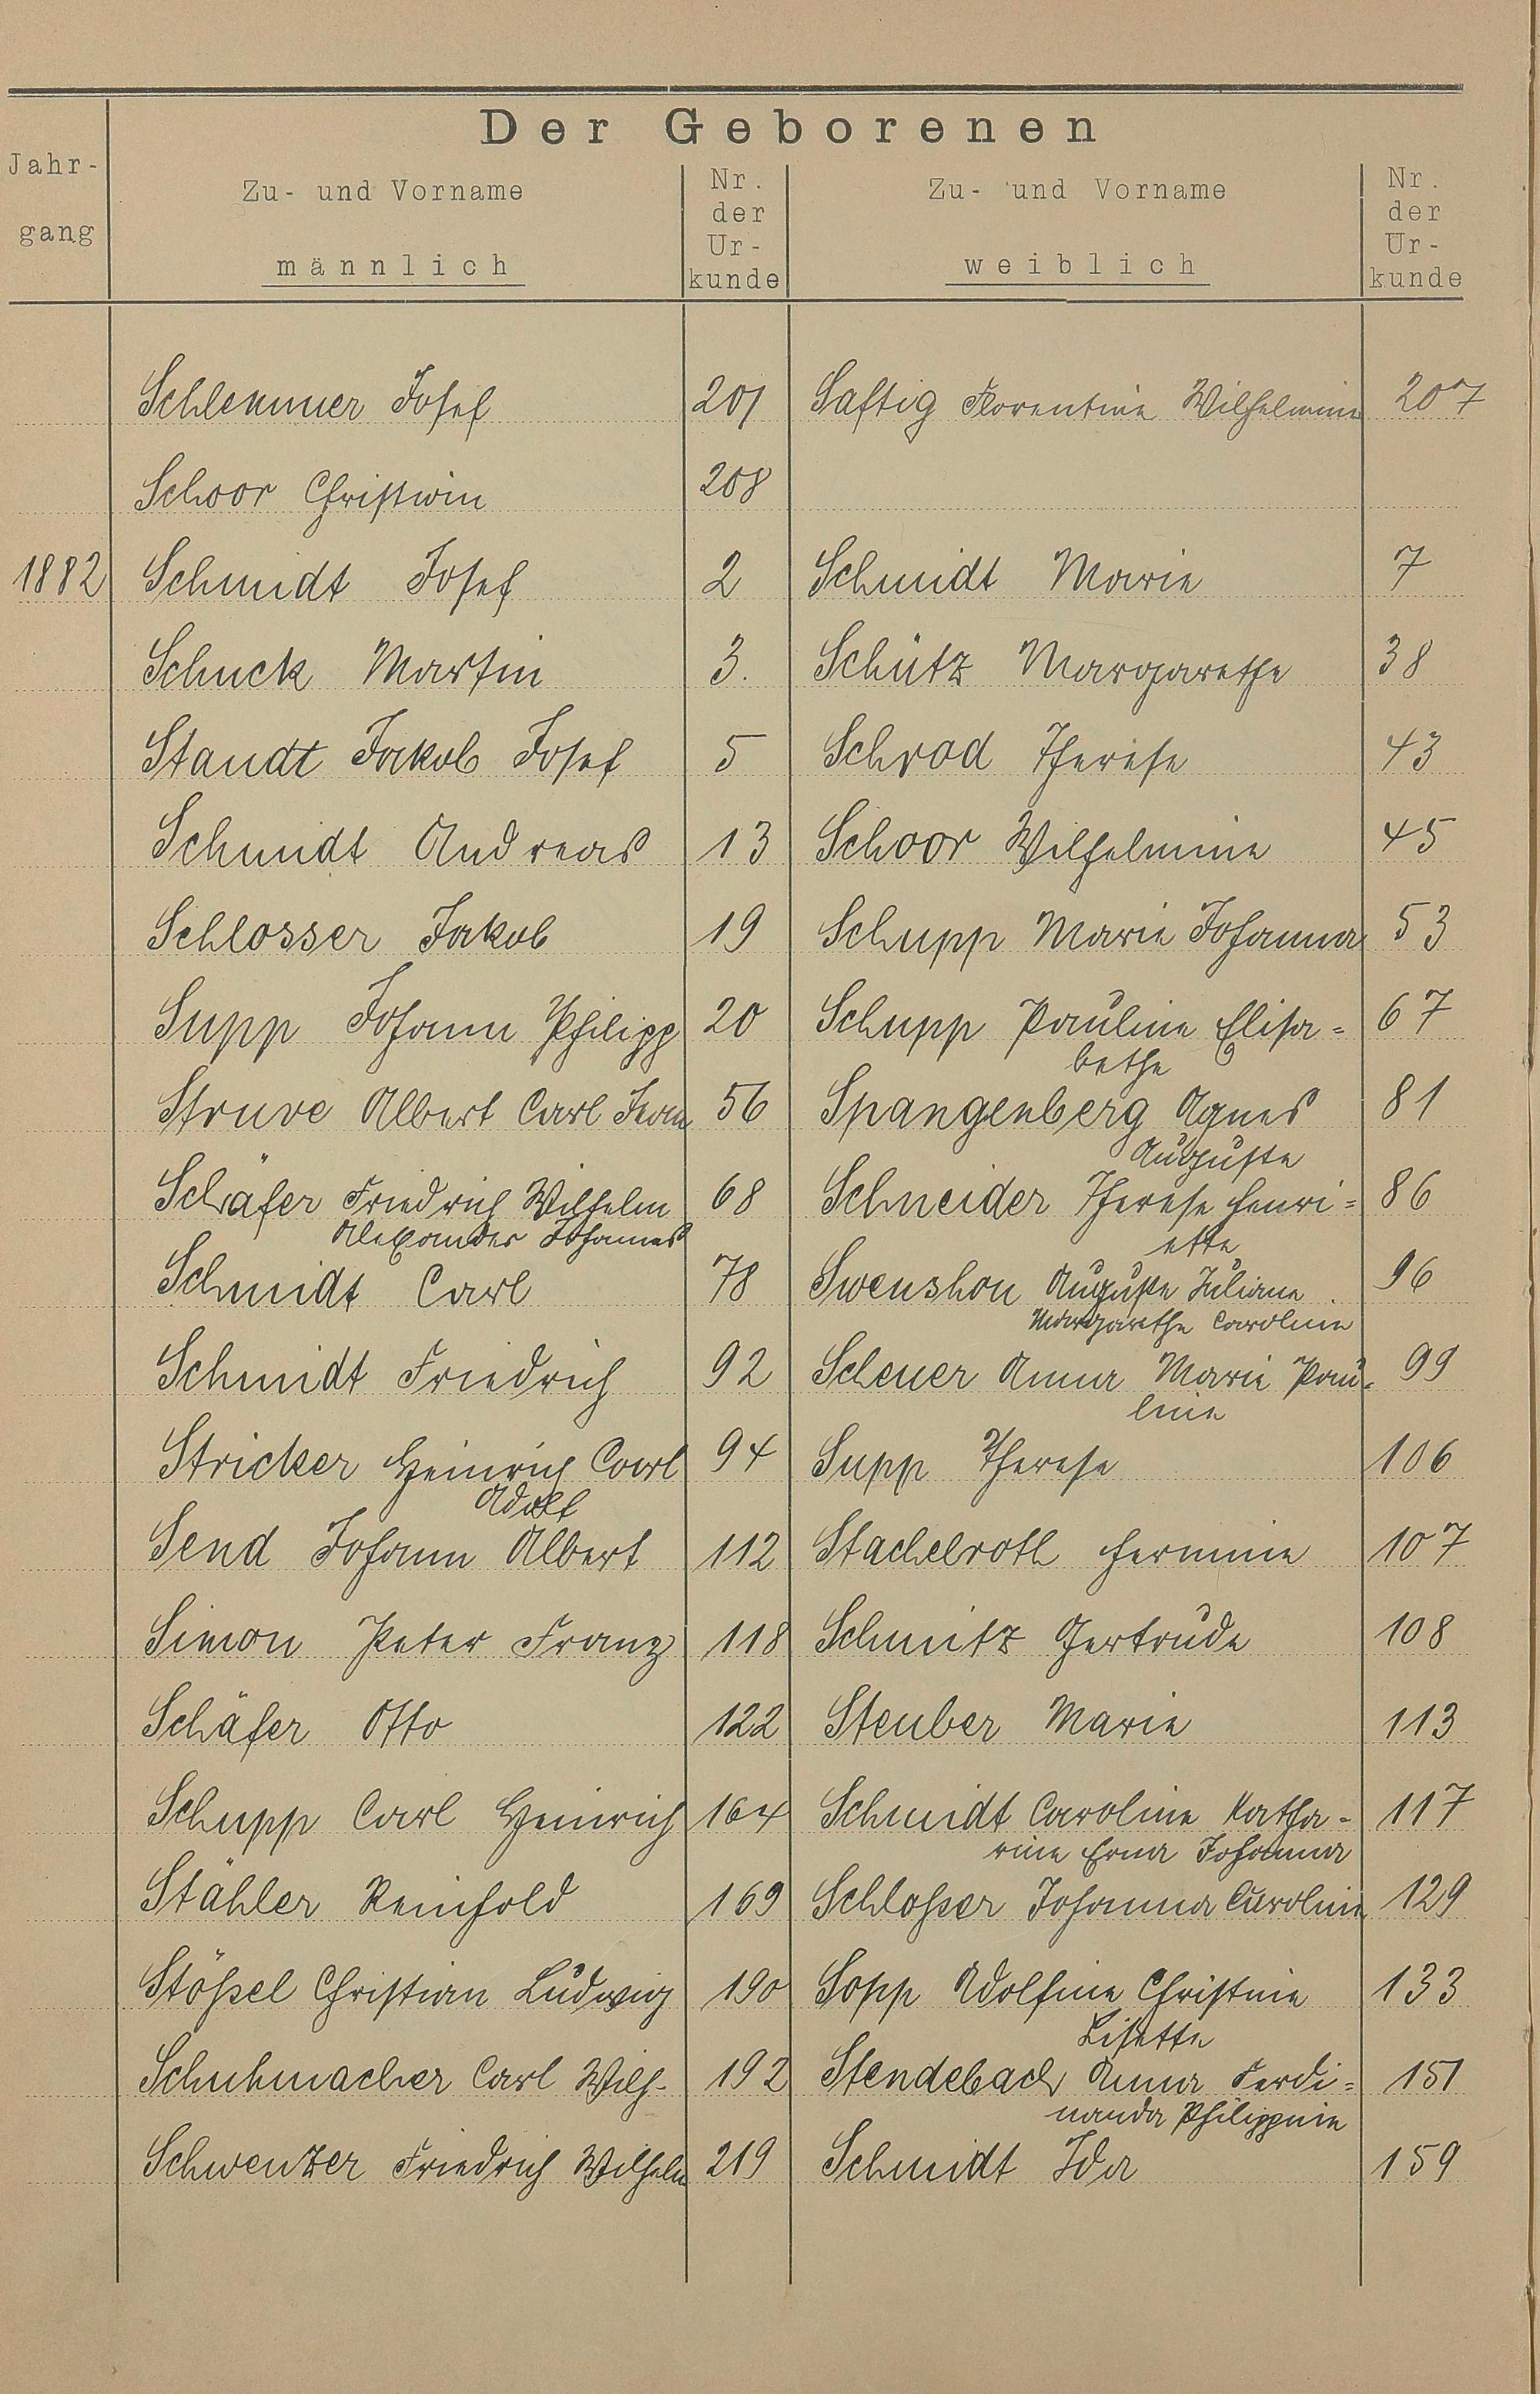 Der Geborenen
Jahr-
gang
Zu- und Vorname
männlich
Nr.
der
Ur-
kunde
Zu- und Vorname
weiblich
Nr.
der
Ur-
kunde
Schlemmer Josef 201 Saftig Florentine Wilhelmine 207
Schoor Christian 208
1882 Schmidt Josef 2 Schmidt Marie 7
Schuck Martin 3. Schütz Margarethe 38
Staudt Jakob Josef 5 Schrad Therese 43
Schmidt Andreas 13 Schoor Wilhelmine 45
Schlosser Jakob 19 Schupp Marie Johanna 53
Supp Johann Philipp 20 Schupp Pauline Elisa= 67
bethe
Struve Albert Carl Jean 56 Spangenberg Agnes 81
Auguste
Schäfer Friedrich Wilhelm 68 Schneider Therese Henri= 86
Alexander Johannes
ette
Schmidt Carl 78 Swenshon Auguste Juliane 96
Margarethe Caroline
Schmidt Friedrich 92 Scheuer Anna Marie Pau= 99
line
Stricker Heinrich Carl 94 Supp Therese 106
Adolf
Send Johann Albert 112 Stachelroth Hermine 107
Simon Peter Franz 118 Schmitz Gertrude 108
Schäfer Otto 122 Steuber Marie 113
Schupp Carl Heinrich 164 Schmidt Caroline Katha- 117
rine Erna Johanna
Stähler Reinhold 169 Schloßer Johanna Caroline 129
Stößel Christian Ludwig 190 Sopp Adolfine Christine 133
Lisette
Schuhmacher Carl Wilh. 192 Stendebach Anna Ferdi= 151
nanda Philippine
Schwenzer Friedrich Wilhelm 219 Schmidt Ida 159